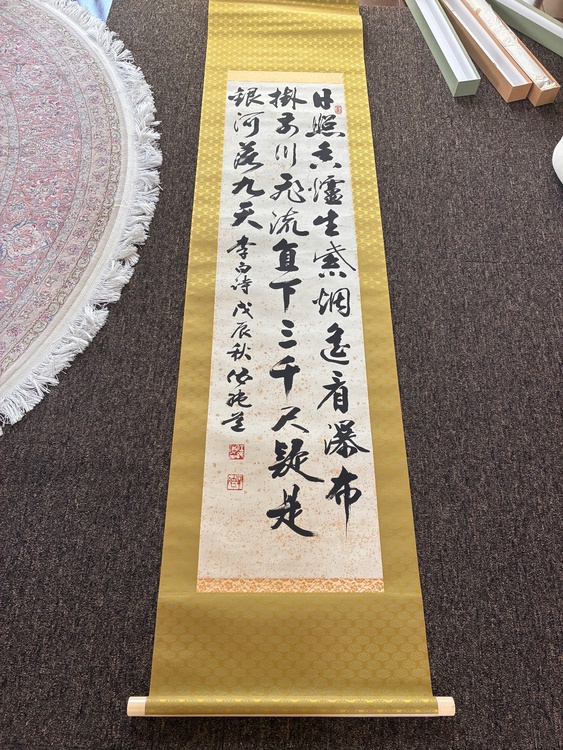 日照香爐生紫烟遙看瀑布
掛前川飛流直下三千尺疑是
銀河落九天 李白詩 戊辰秋